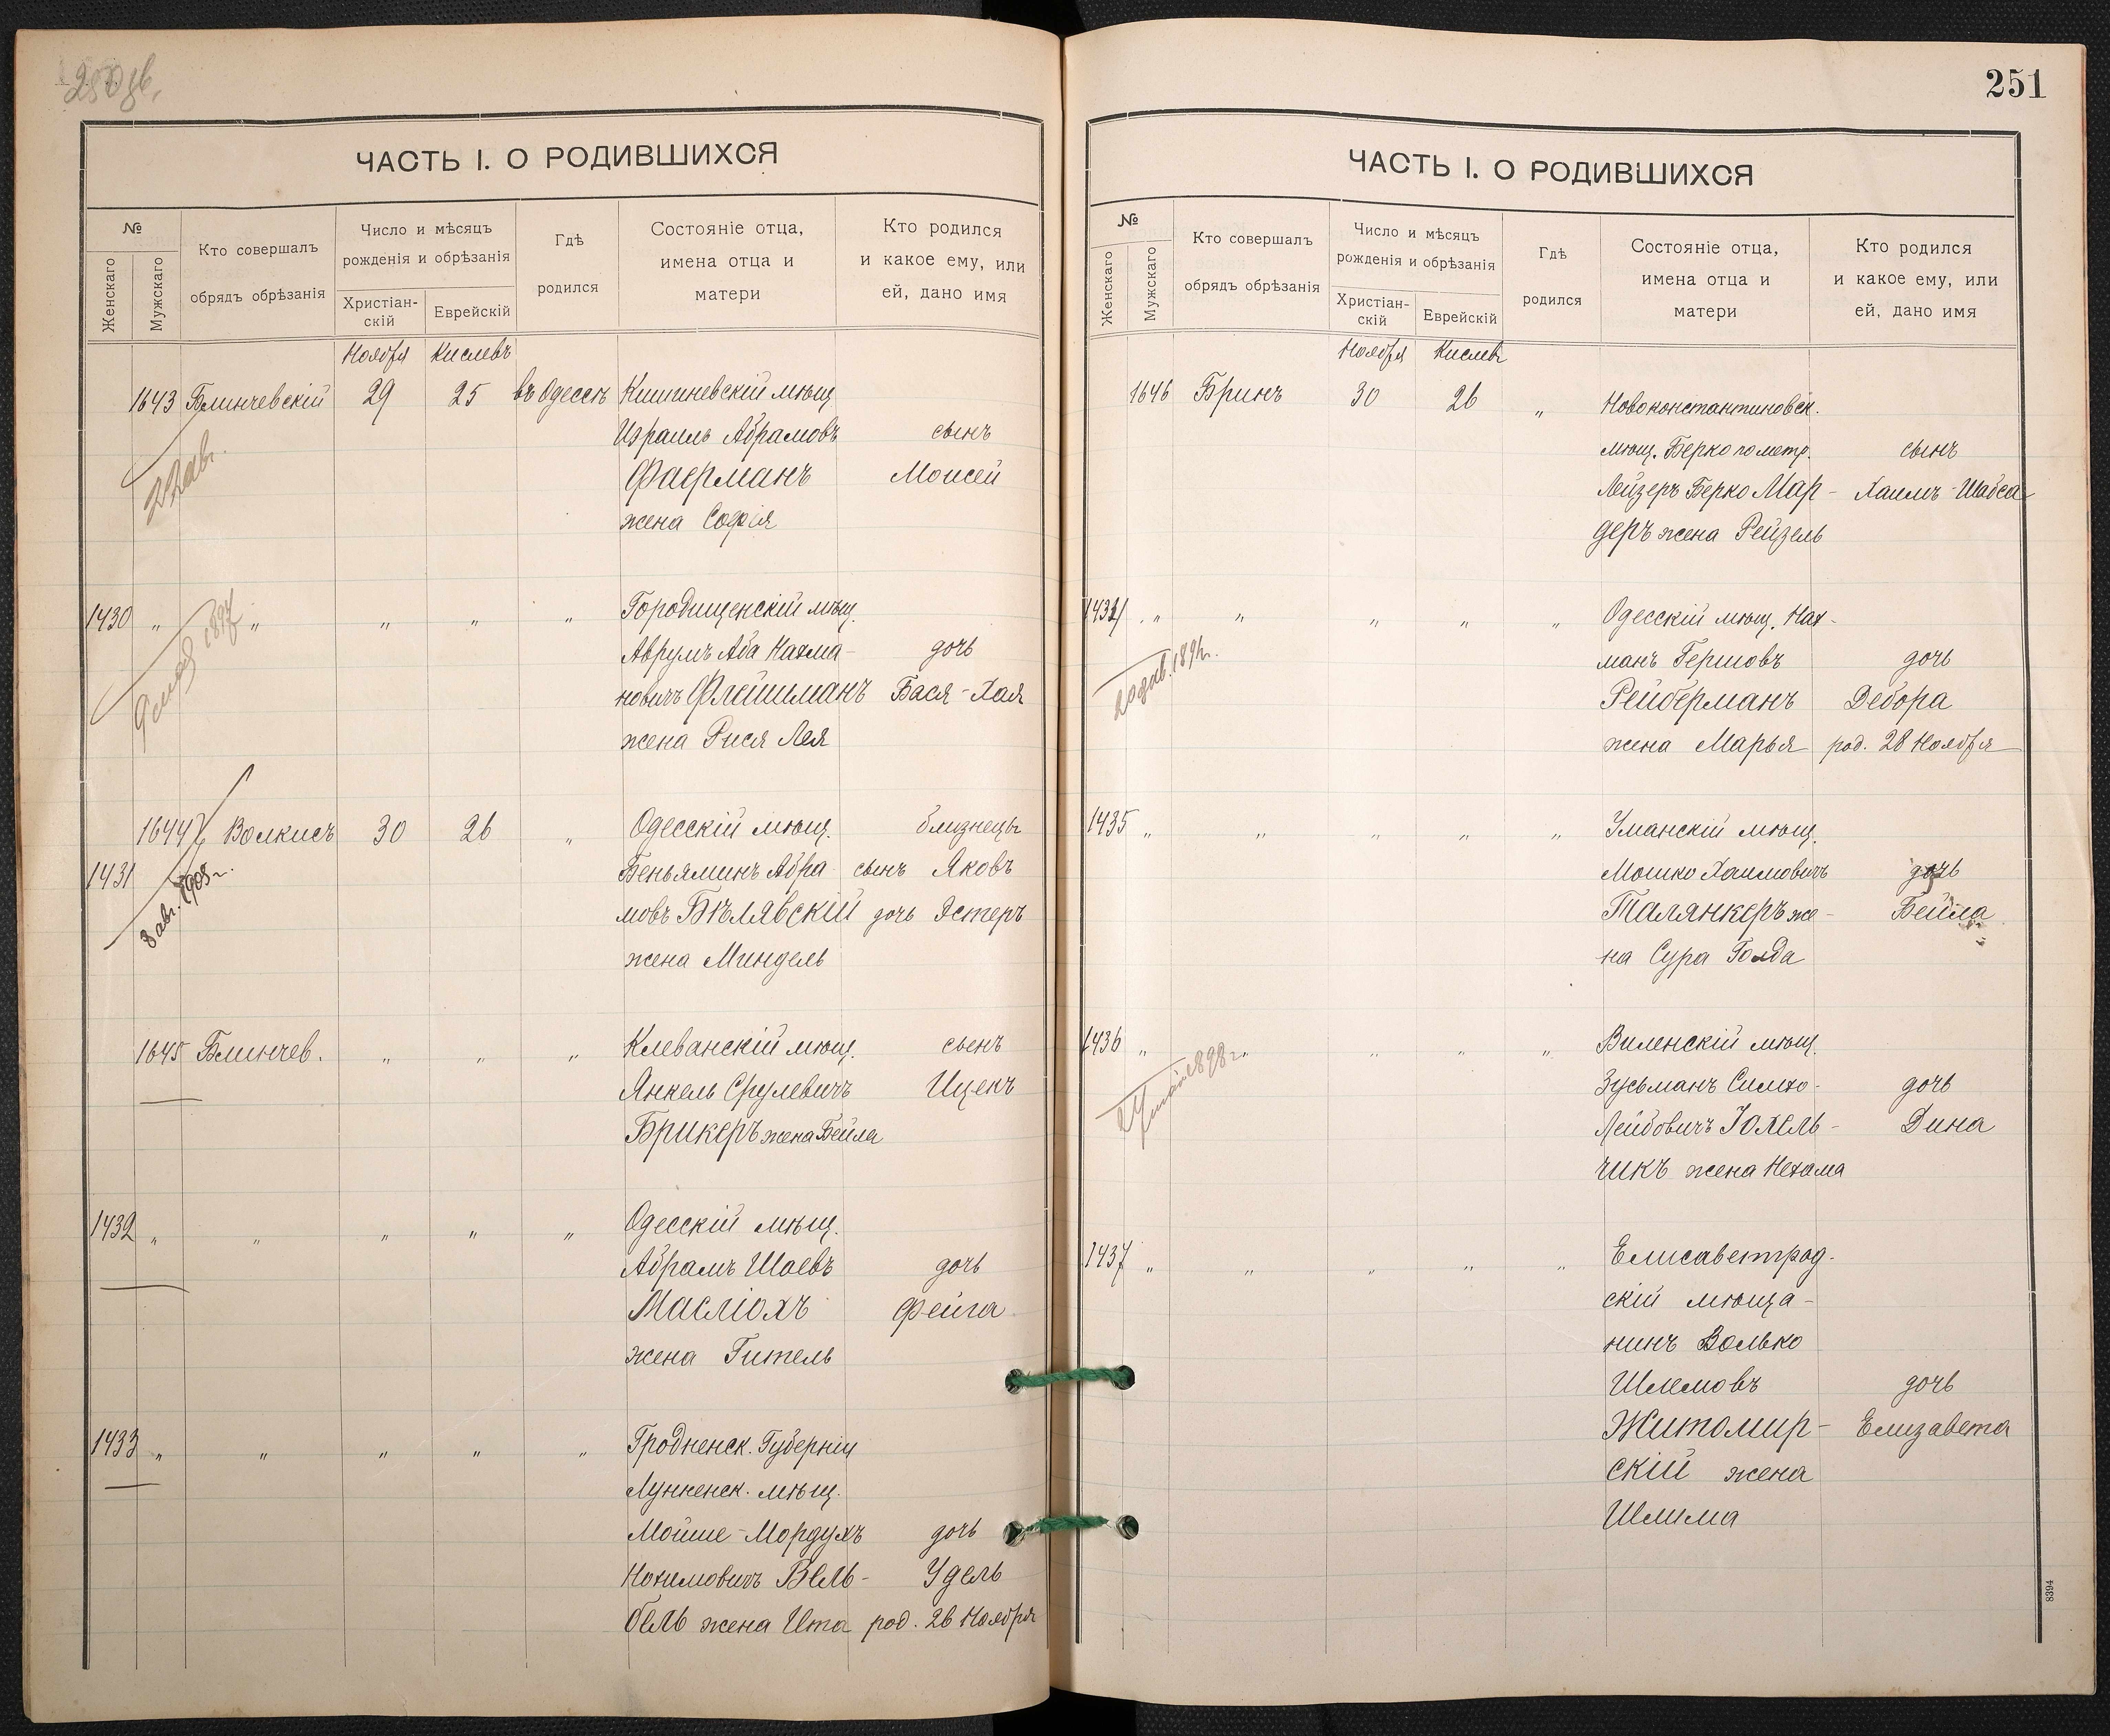 251
ЧАСТЬ I. О РОДИВШИХСЯ
№
Женскаго
Мужскаго
Кто совершалъ
обрядъ обрѣзанія
Число и мѣсяцъ
рожденія и обрѣзанія
Христіан-
скій
Еврейскій
Гдѣ
родился
Состояніе отца,
имена отца и
матери
Кто родился
и какое ему, или
ей, дано имя
Ноября Кислевъ
1643 Блинчевскій 29 25 въ Одессѣ Кишиневскій мѣщ
Израиль Абрамовъ сынъ
Фаерманъ Моисей
жена Софія
1430 „ „ „ „ „ Городищенскій мѣщ.
Аврумъ Аба Нахма- дочь
новичъ Флейшманъ Бася-Хая
жена Рися Лея
1644 Волкисъ 30 26 „ Одесскій мѣщ. близнецы
1431 Беньяминъ Абра сынъ Яковъ
мовъ Бѣлявскій дочь Эстеръ
8 авг. 1903 г.
жена Миндель
1645 Блинчев. „ „ „ Клеванскій мѣщ. сынъ
Янкель Срулевичъ Иценъ
Брикеръ жена Бейла
1432 „ „ „ „ „ Одесскій мѣщ.
Абрамъ Шаевъ дочь
Масліохъ Фейга
жена Гитель
1433 „ „ „ „ „ Гродненск. Губерніи
Лунненск. мѣщ.
Мойше-Мордухъ дочь
Нохимовичъ Вель- Удель
бель жена Ита род. 26 Ноября
ЧАСТЬ I. О РОДИВШИХСЯ
№
Женскаго
Мужскаго
Кто совершалъ
обрядъ обрѣзанія
Число и мѣсяцъ
рожденія и обрѣзанія
Христіан-
скій
Еврейскій
Гдѣ
родился
Состояніе отца,
имена отца и
матери
Кто родился
и какое ему, или
ей, дано имя
Ноября Кислевъ
1646 Бринъ 30 26 „ Новоконстантиновск.
мѣщ. Берко по метр. сынъ
Лейзеръ Берко Мар- Хаимъ-Шабса
деръ жена Рейзель
„ „ „ „ „ Одесскій мѣщ. Нах-
манъ Гершовъ дочь
Рейберманъ Дебора
жена Марья род. 28 Ноября
1435 „ „ „ „ „ Уманскій мѣщ.
Мошко Хаимовичъ дочь
Талянкеръ же- Бейла
на Сура Голда
1436 „ „ „ „ „ Виленскій мѣщ.
Зусьманъ Симхо- дочь
Лейбовичъ Юхель- Дина
чикъ жена Нехама
1437 „ „ „ „ „ Елисаветград-
скій мѣща-
нинъ Волько
Шлемовъ дочь
Житомир- Елизавета
скій жена
Шлима
8394